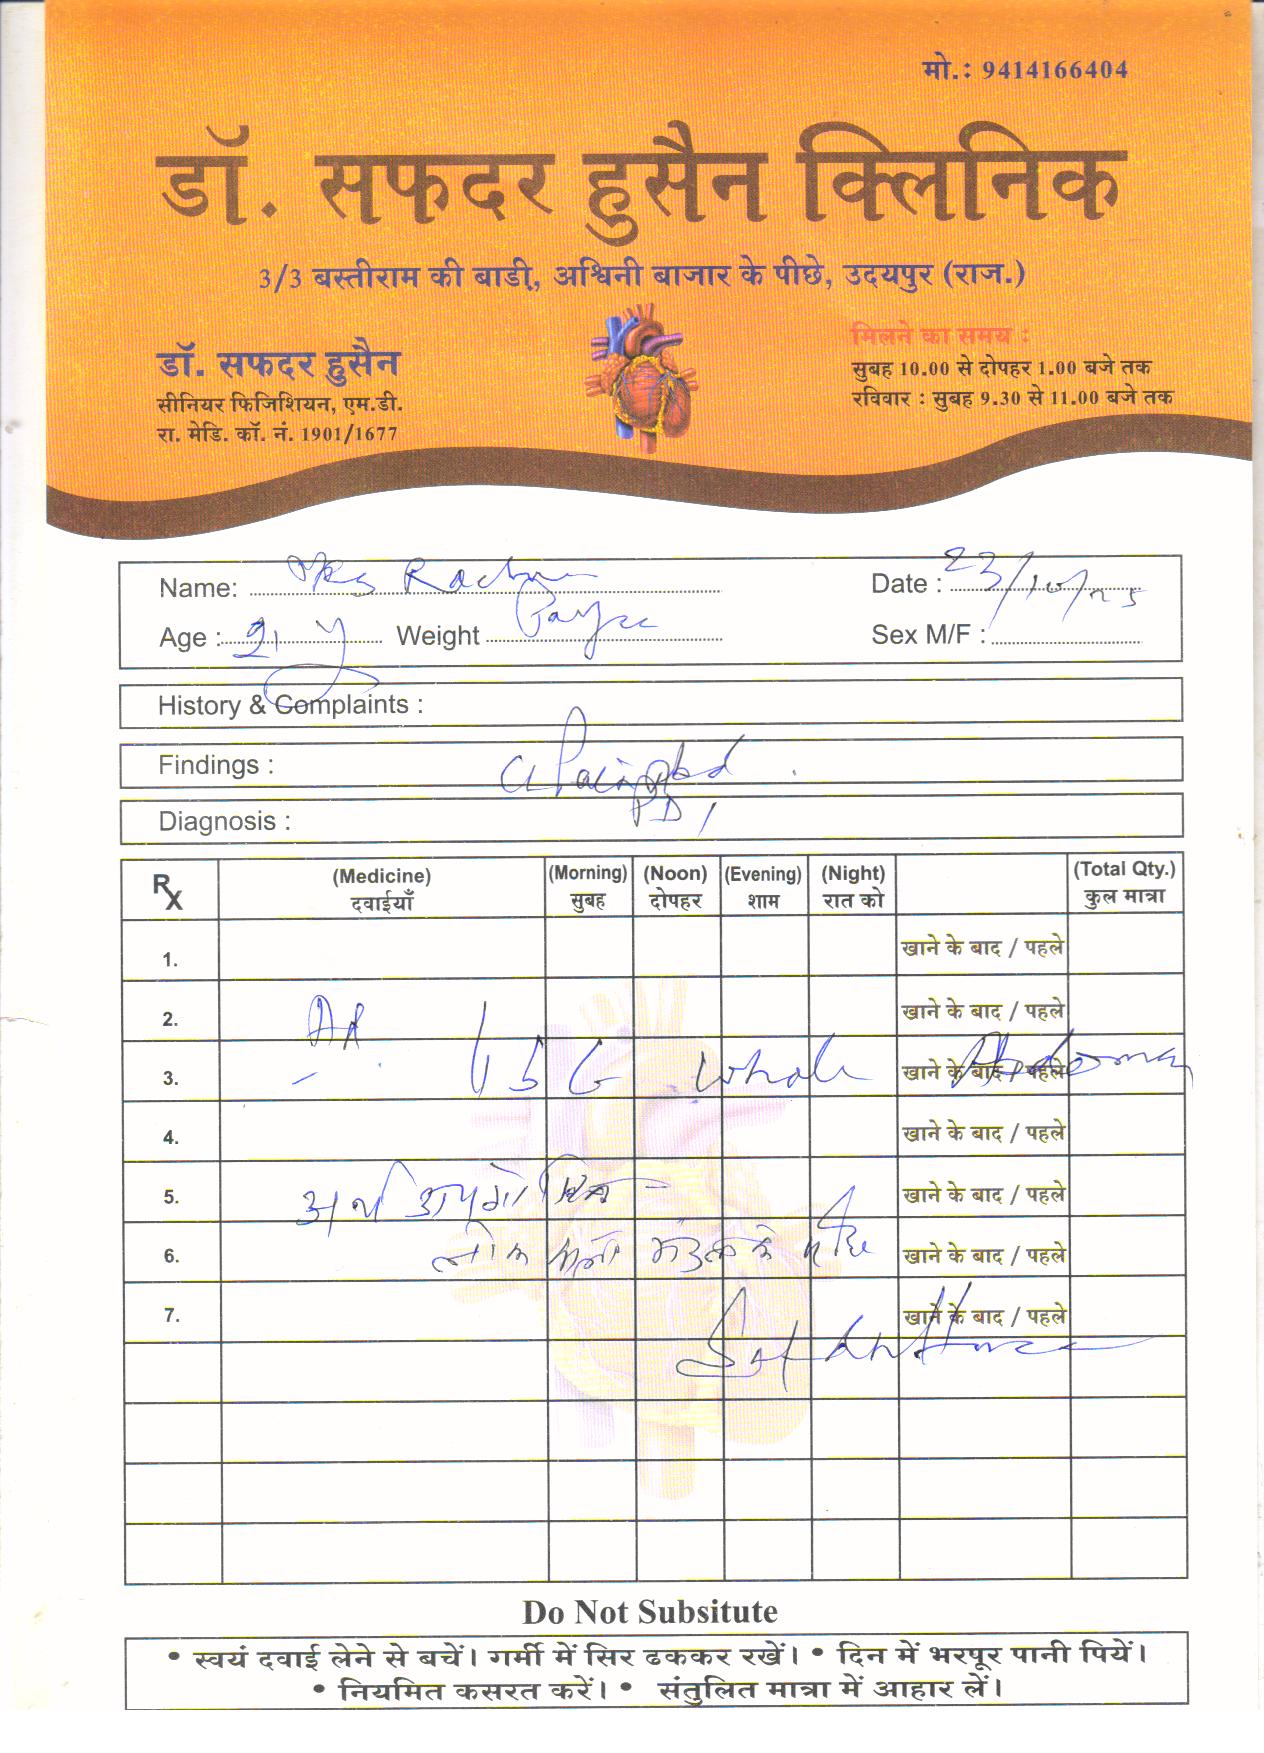 मो.: 9414166404
डॉ. सफदर हुसैन क्लिनिक
3/3 बस्तीराम की बाडी, अश्विनी बाजार के पीछे, उदयपुर (राज.)
डॉ. सफदर हुसैन
सीनियर फिजिशियन, एम.डी.
रा. मेडि. कॉ. नं. 1901/1677
मिलने का समय :
सुबह 10.00 से दोपहर 1.00 बजे तक
रविवार : सुबह 9.30 से 11.00 बजे तक
Name: Date : 23/10/25
Age : 21 y Weight Sex M/F :
History & Complaints :
Findings : Pain Abd
Diagnosis :
Rx (Medicine) (Morning) (Noon) (Evening) (Night) (Total Qty.)
दवाईयाँ सुबह दोपहर शाम रात को कुल मात्रा
1. खाने के बाद / पहले
2. खाने के बाद / पहले
3. USG Whole Abdomen खाने के बाद / पहले
4. खाने के बाद / पहले
5. खाने के बाद / पहले
6. लोक कला मंडल के पीछे खाने के बाद / पहले
7. खाने के बाद / पहले
Do Not Subsitute
• स्वयं दवाई लेने से बचें। गर्मी में सिर ढककर रखें। • दिन में भरपूर पानी पियें।
• नियमित कसरत करें। • संतुलित मात्रा में आहार लें।